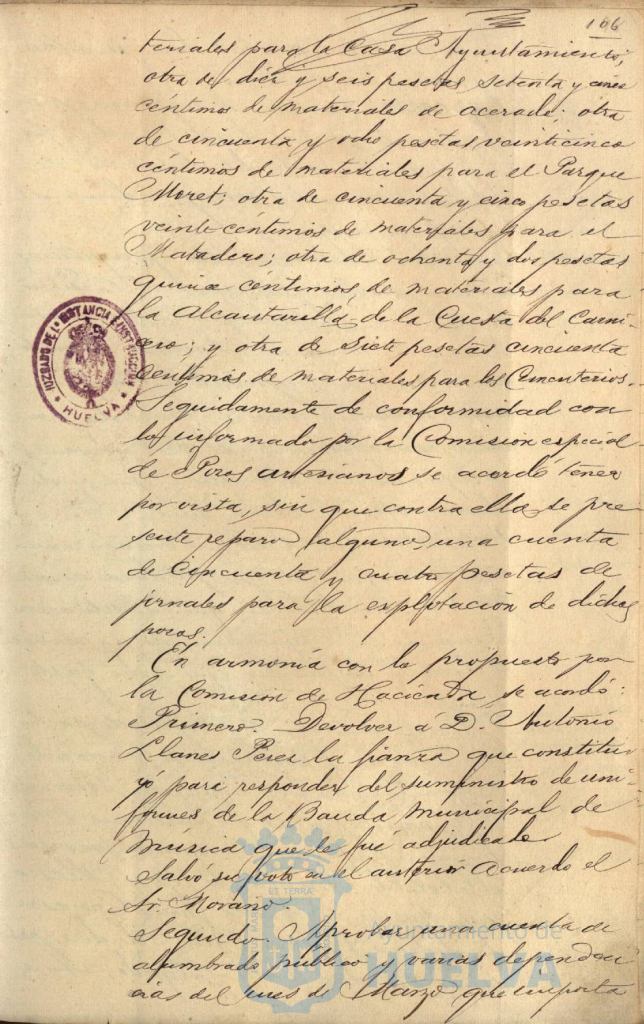 106
teriales para la Casa Ayuntamiento;
otra de diez y seis pesetas setenta y cinco
céntimos de materiales de acerado; otra
de cincuenta y ocho pesetas veinticinco
céntimos de materiales para el Parque
Moret; otra de cincuenta y cinco pesetas
veinte céntimos de materiales para el
Matadero; otra de ochenta y dos pesetas
quince céntimos de materiales para
la Alcantarilla de la Cuesta del Carni
cero; y otra de siete pesetas cincuenta
céntimos de materiales para los Cementerios.
Seguidamente de conformidad con
lo informado por la Comisión especial
de Pozos artesianos se acordó tener
por vista, sin que contra ella se pre
sente reparo alguno, una cuenta
de cincuenta y cuatro pesetas de
jornales para la explotación de dichos
pozos.
En armonía con lo propuesto por
la Comisión de Hacienda, se acordó:
Primero. Devolver á D. Antonio
Llanes Perez la fianza que constitu
yó para responder del suministro de uni-
formes de la Banda Municipal de
Música que le fué adjudicado
Salvó su voto en el anterior acuerdo el
Sr. Morano.
Segundo. Aprobar una cuenta de
alumbrado público y varias dependen
cias del mes de Marzo que importa
JUZGADO DE 1ª INSTANCIA E INSTRUCCION
* HUELVA *
Ayuntamiento de
HUELVA